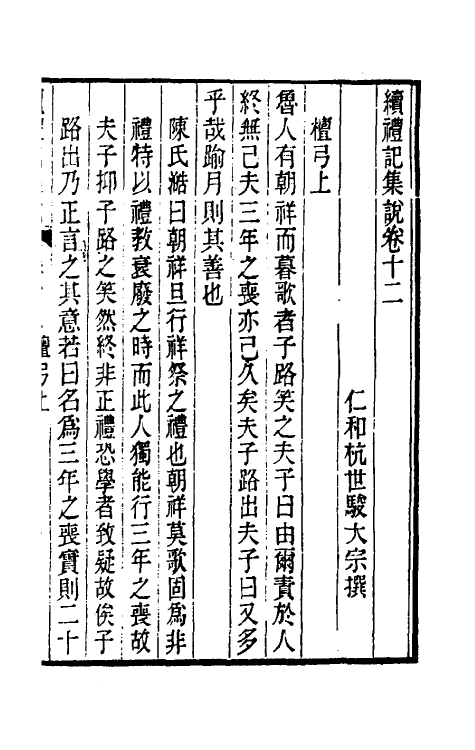 續禮記集說卷十二
仁和杭世駿大宗撰
檀弓上
魯人有朝祥而暮歌者子路笑之夫子曰由爾責於人
終無己夫三年之喪亦已久矣夫子路出夫子曰又多
乎哉踰月則其善也
陳氏澔曰朝祥旦行祥祭之禮也朝祥莫歌固爲非
禮特以禮教衰廢之時而此人獨能行三年之喪故
夫子抑子路之笑然終非正禮恐學者致疑故俟子
路出乃正言之其意若曰名爲三年之喪實則二十
檀弓上